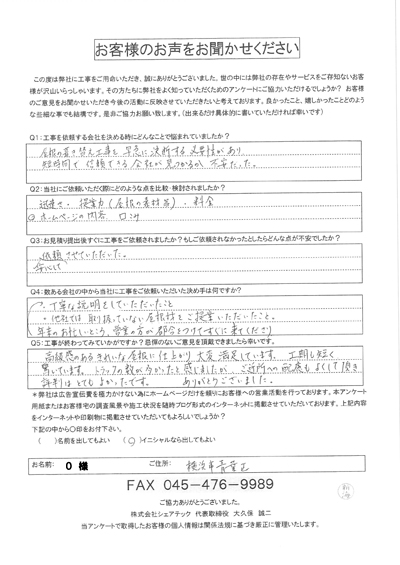 お客様のお声をお聞かせください
この度は弊社に工事をご用命いただき、誠にありがとうございました。世の中には弊社の存在やサービスをご存知ないお客様が沢山いらっしゃいます。その方たちに弊社をよく知っていただくためのアンケートにご協力いただけるでしょうか？ お客様のご意見をお聞かせいただき今後の活動に反映させていただきたいと考えております。良かったこと、嬉しかったことどのような些細な事でも結構です。是非ご協力お願い致します。（出来るだけ具体的に書いていただければ幸いです）
Q1:工事を依頼する会社を決める時にどんなことで悩まれていましたか？
屋根の葺き替え工事を早急に決断する必要があり
短時間で信頼できる会社が見つかるか不安だった。
Q2:当社にご依頼いただく際にどのような点を比較・検討されましたか？
迅速さ・提案力（屋根の素材等）・料金
ホームページの内容 口コミ
Q3:お見積り提出後すぐに工事をご依頼されましたか？もしご依頼されなかったとしたらどんな点が不安でしたか？
依頼させていただいた。
Q4:数ある会社の中から当社に工事をご依頼いただいた決め手は何ですか？
・丁寧な説明をしていただいたこと
・他社では取り扱っていない屋根材をご提案いただいたこと。
年末のお忙しいところ、営業の方が都合をつけてすぐに来てくださり
Q5:工事が終わってみていかがですか？忌憚のないご意見を頂戴できましたら幸いです。
高級感のあるきれいな屋根に仕上がり大変満足しています。工期も短く
驚いています。トラックの数が多かったと感じましたが、ご近所への配慮もよくして頂き
評判はとてもよかったです。 ありがとうございました。
＊弊社は広告宣伝費を極力かけない為にホームページだけを頼りにお客様への営業活動を行っております。本アンケート用紙またはお客様宅の調査風景や施工状況を随時ブログ形式のインターネットに掲載させていただいております。上記内容をインターネットや印刷物に掲載させていただいてもよろしいでしょうか？
下記の中から〇印をお付下さい。
（ ）名前を出してもよい （〇）イニシャルなら出してもよい
お名前: O 様 ご住所: 横浜市青葉区
FAX 045-476-9989
ご協力ありがとうございました。
株式会社シェアテック 代表取締役 大久保 誠二
当アンケートで取得したお客様の個人情報は関係法規に基づき厳正に管理いたします。